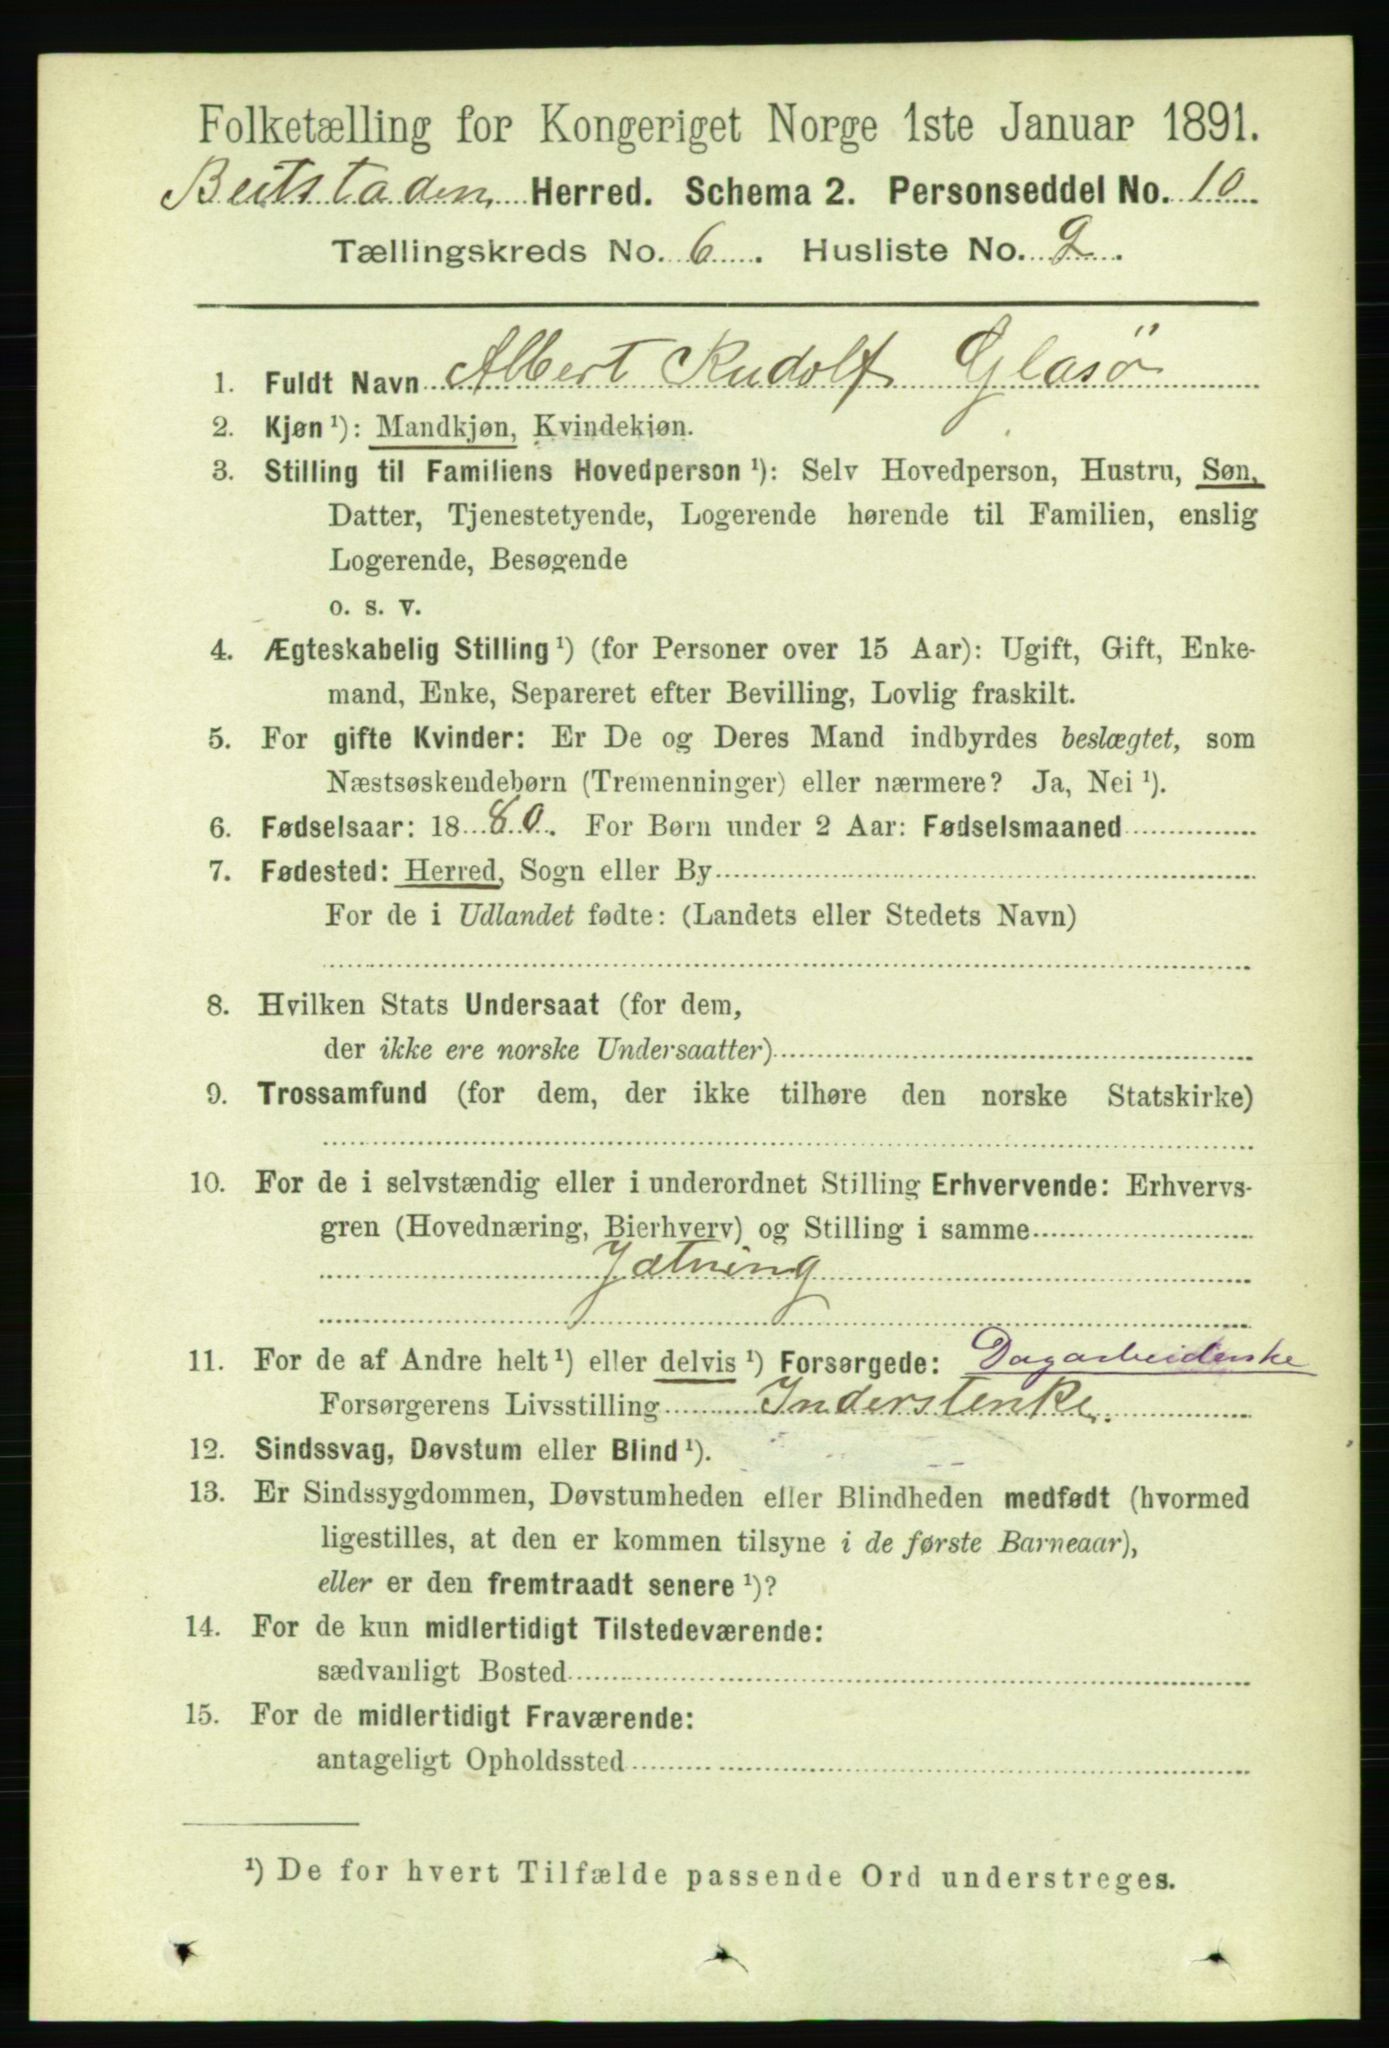 Folketælling for Kongeriget Norge 1ste Januar 1891.
Beitstaden Herred. Schema 2. Personseddel No. 10
Tællingskreds No. 6. Husliste No. 2.
1. Fuldt Navn Albert Rudolf Glasö
2. Kjøn ¹): Mandkjøn, Kvindekjøn.
3. Stilling til Familiens Hovedperson ¹): Selv Hovedperson, Hustru, Søn,
Datter, Tjenestetyende, Logerende hørende til Familien, enslig
Logerende, Besøgende
o. s. v.
4. Ægteskabelig Stilling ¹) (for Personer over 15 Aar): Ugift, Gift, Enke-
mand, Enke, Separeret efter Bevilling, Lovlig fraskilt.
5. For gifte Kvinder: Er De og Deres Mand indbyrdes beslægtet, som
Næstsøskendebørn (Tremenninger) eller nærmere? Ja, Nei ¹).
6. Fødselsaar: 1880. For Børn under 2 Aar: Fødselsmaaned
7. Fødested: Herred, Sogn eller By
For de i Udlandet fødte: (Landets eller Stedets Navn)
8. Hvilken Stats Undersaat (for dem,
der ikke ere norske Undersaatter)
9. Trossamfund (for dem, der ikke tilhøre den norske Statskirke)
10. For de i selvstændig eller i underordnet Stilling Erhvervende: Erhvervs-
gren (Hovednæring, Bierhverv) og Stilling i samme
Jætning
11. For de af Andre helt ¹) eller delvis ¹) Forsørgede: Dagarbeiderske
Forsørgerens Livsstilling Inderstenke.
12. Sindssvag, Døvstum eller Blind ¹).
13. Er Sindssygdommen, Døvstumheden eller Blindheden medfødt (hvormed
ligestilles, at den er kommen tilsyne i de første Barneaar),
eller er den fremtraadt senere ¹)?
14. For de kun midlertidigt Tilstedeværende:
sædvanligt Bosted
15. For de midlertidigt Fraværende:
antageligt Opholdssted
¹) De for hvert Tilfælde passende Ord understreges.